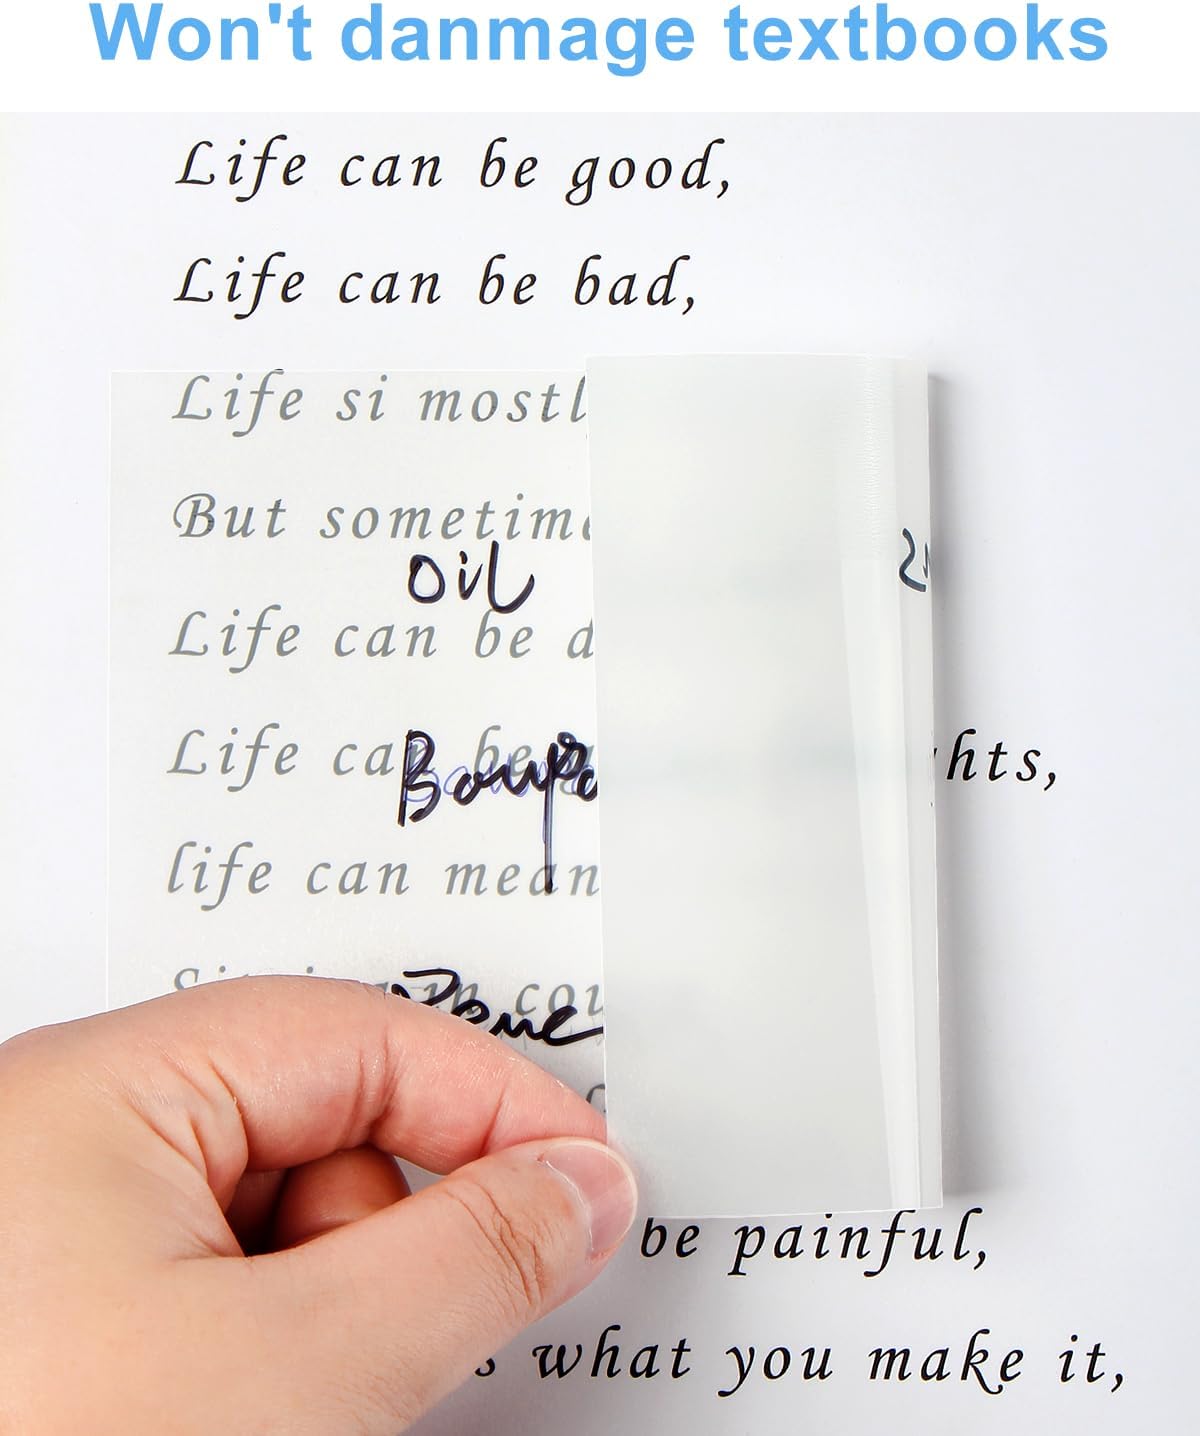 Won't danmage textbooks
Life can be good,
Life can be bad,
Life si mostl
But sometim
oil
Life can be d
Life can be
hts,
life can mean
in cou
be painful,
what you make it,